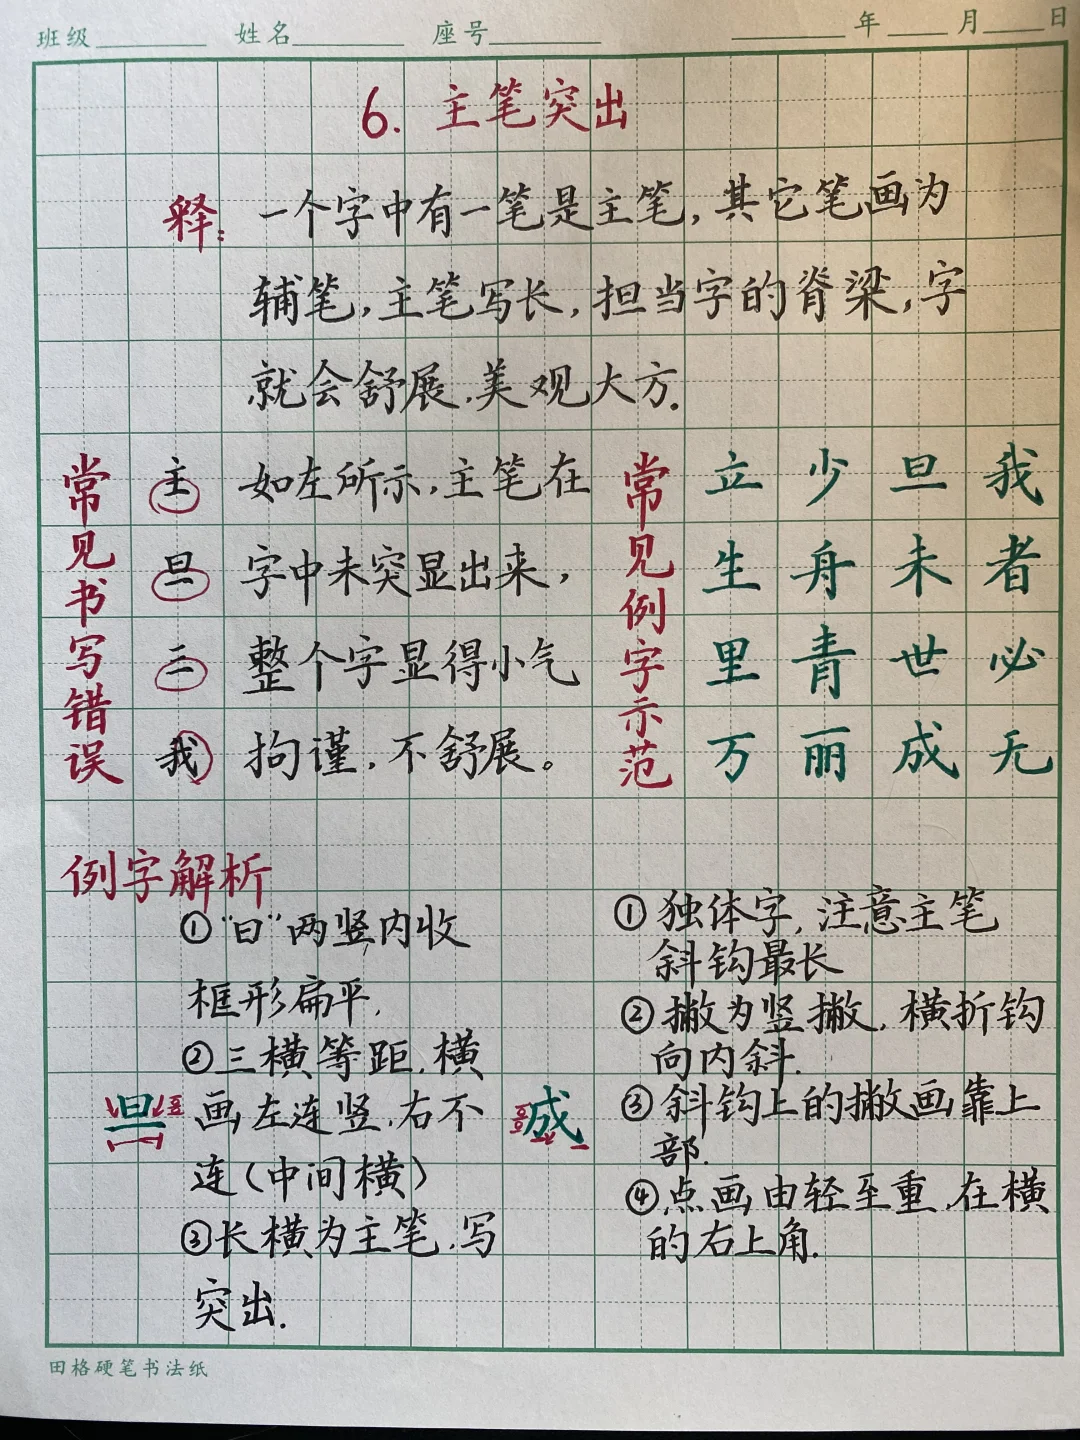 班级 姓名 座号 年 月 日
6. 主笔突出
释: 一个字中有一笔是主笔, 其它笔画为
辅笔, 主笔写长, 担当字的脊梁, 字
就会舒展, 美观大方.
常见书写错误
主 如左所示, 主笔在
旦 字中未突显出来,
三 整个字显得小气
我 拘谨, 不舒展。
常见例字示范
立 少 旦 我
生 舟 未 者
里 青 世 必
万 丽 成 无
例字解析
旦
①“日”两竖内收
框形扁平,
②三横等距, 横
画左连竖, 右不
连(中间横)
③长横为主笔, 写
突出.
成
①独体字, 注意主笔
斜钩最长
②撇为竖撇, 横折钩
向内斜.
③斜钩上的撇画靠上
部.
④点画由轻至重, 在横
的右上角.
田格硬笔书法纸